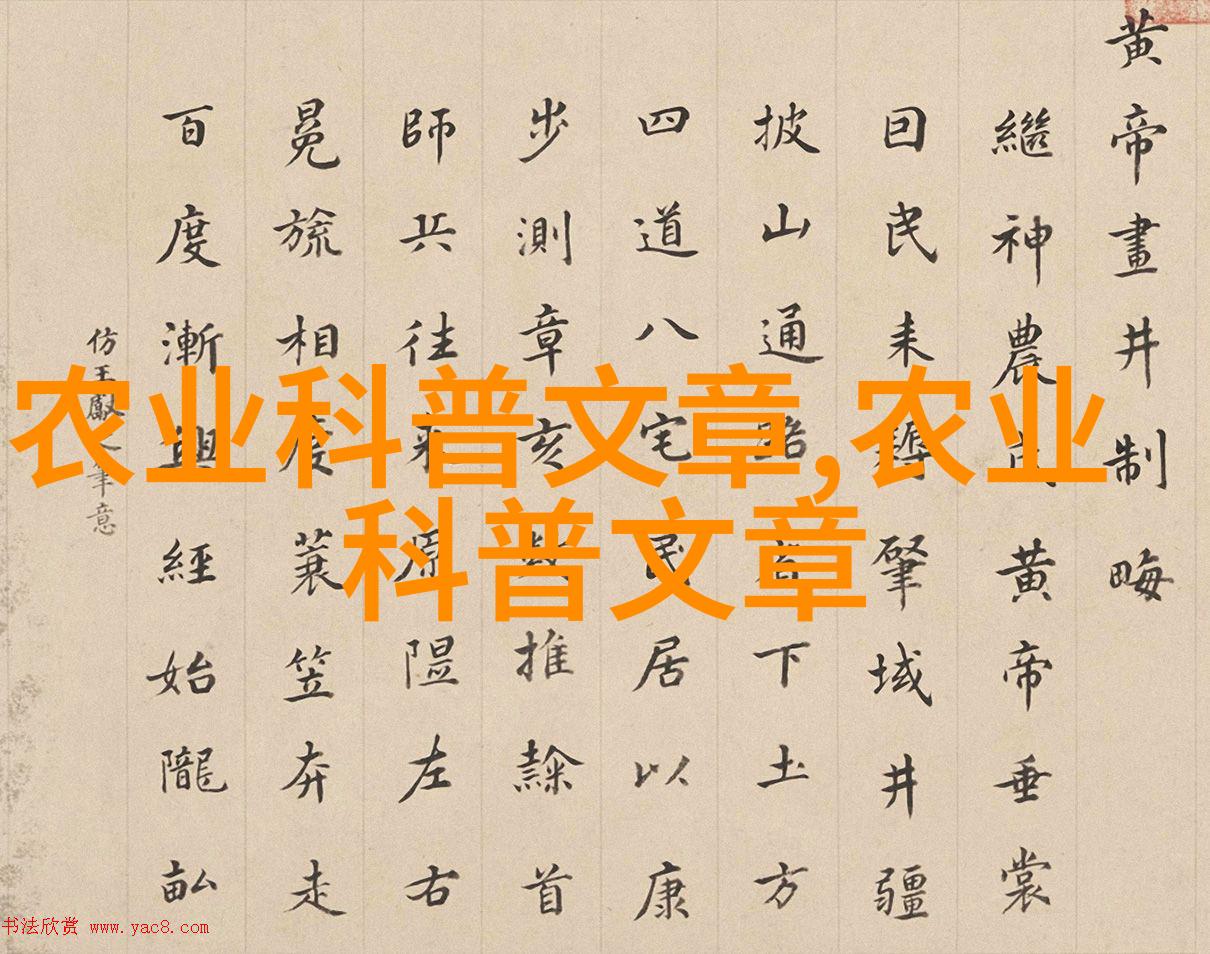 黄帝畫井制畮
繼神農氏黄帝垂裳
囙民耒肇域井疆
披山通下土方
四道八宅民居以康
步測章亥數推隸首
師兵往來原隰左右
冕旒相度蓑笠奔走
百度漸興經始隴畝
仿王獻之筆意
农业科普文章,农业
科普文章
书法欣赏 www.yac8.com